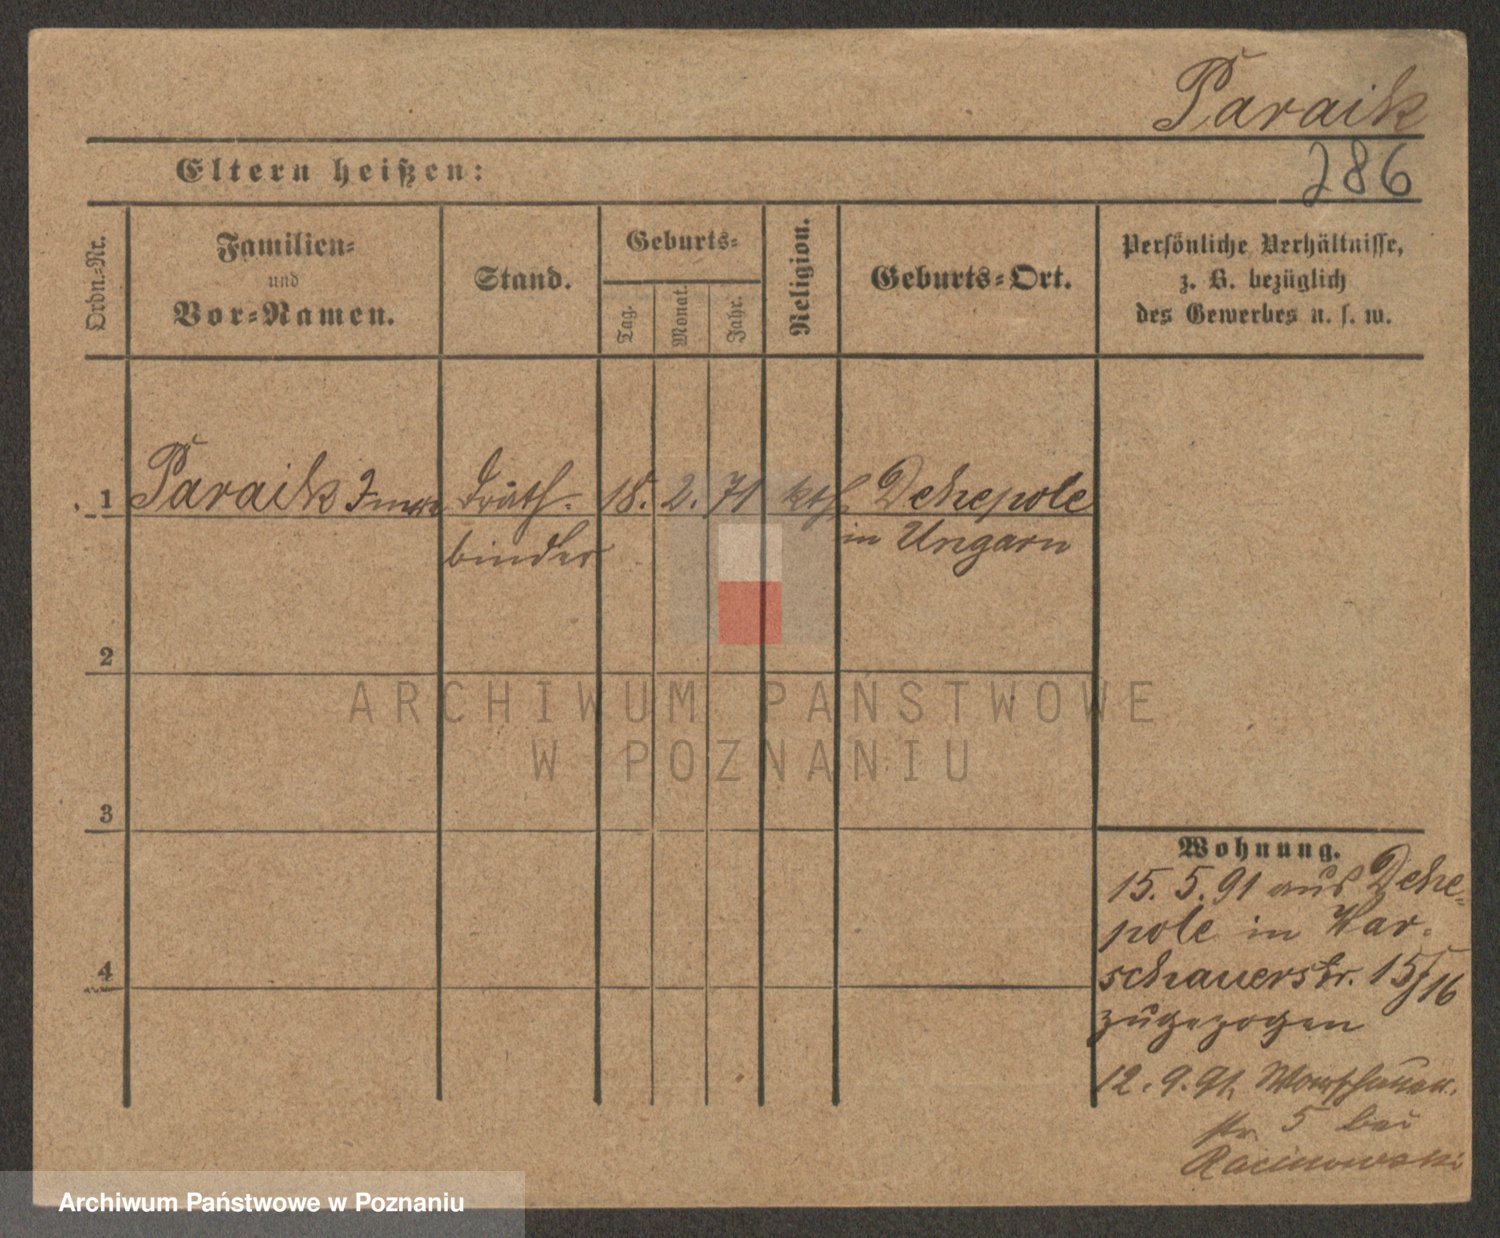 Paraik
286
Eltern heißen:
Ordn.=Nr.
Familien=
und
Vor=Namen.
Stand.
Geburts=
Tag.
Monat.
Jahr.
Religion.
Geburts=Ort.
Persönliche Verhältnisse,
z. B. bezüglich
des Gewerbes u. s. w.
1 Paraik Imre Drath- 18. 2. 71 kth Dehepole
binder in Ungarn
2
3
4
ARCHIWUM PAŃSTWOWE
W POZNANIU
Wohnung.
15. 5. 91 aus Dehe=
pole in War-
schauerstr. 15/16
zugezogen
12. 9. 91 Warschauer
str 5 bei
Racinowski
Archiwum Państwowe w Poznaniu